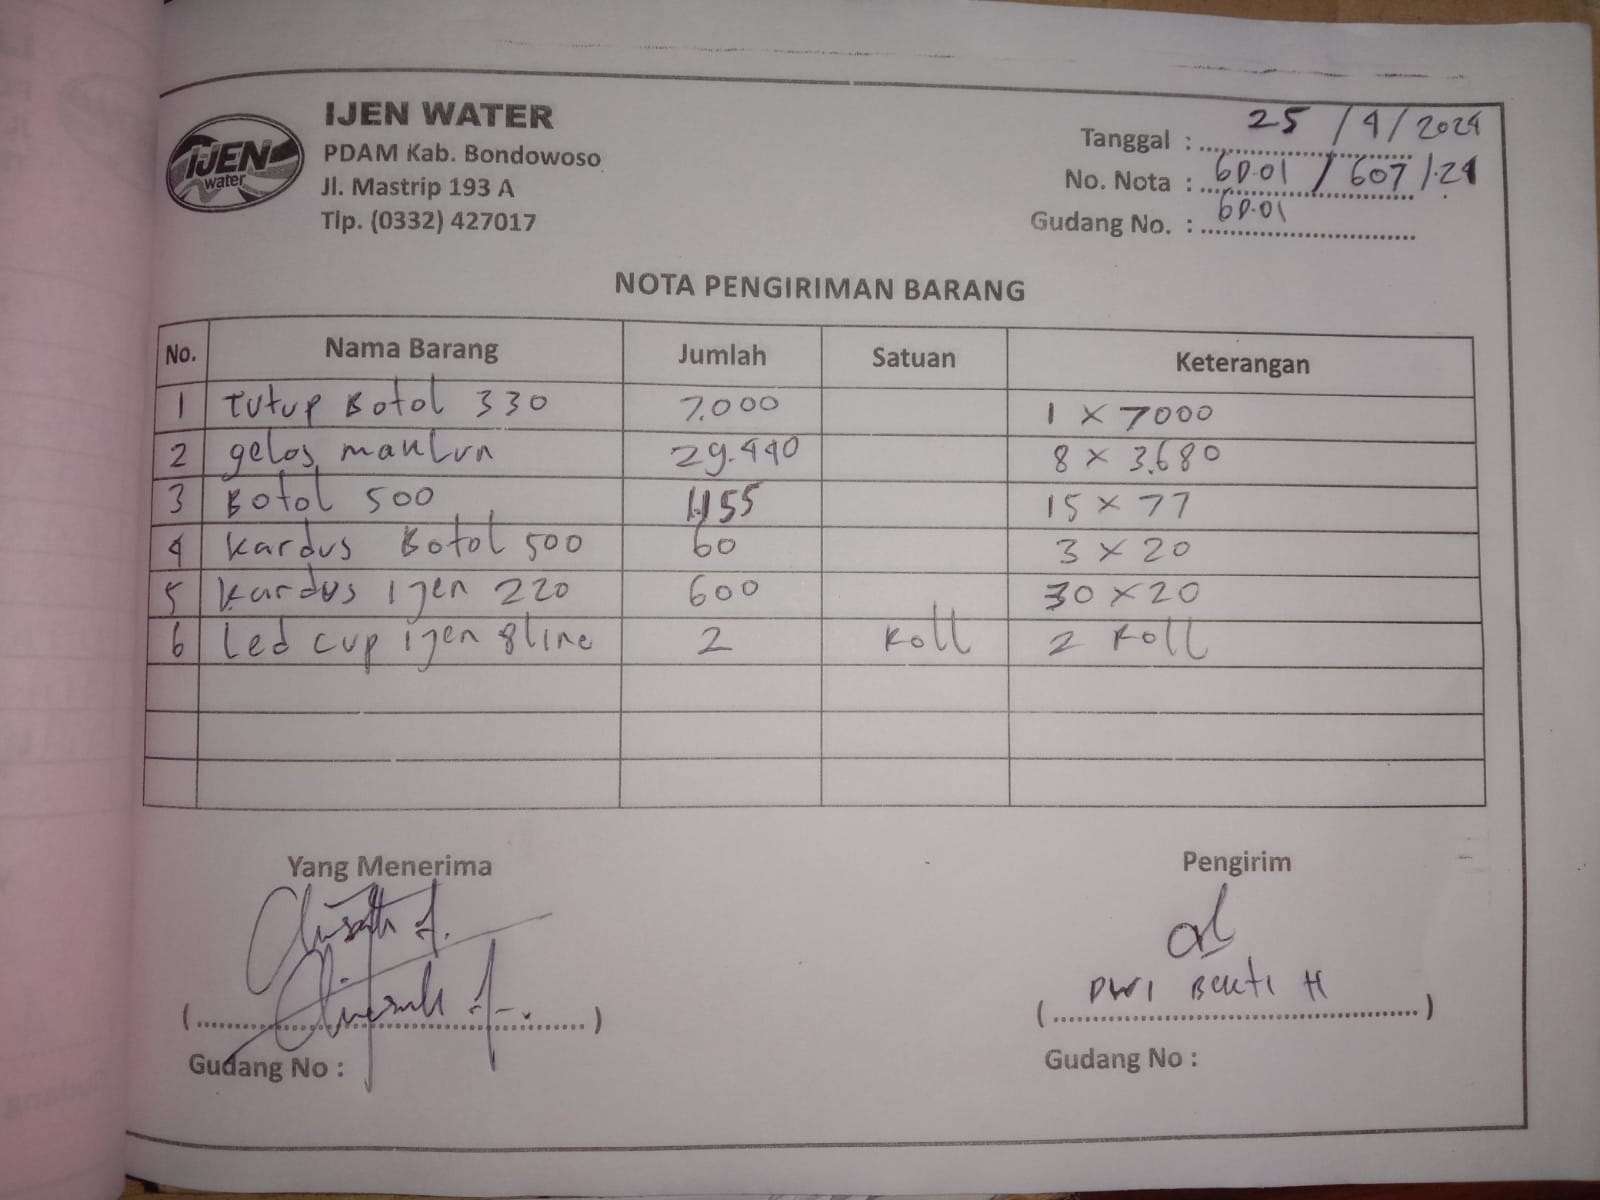 IJEN WATER
PDAM Kab. Bondowoso
Jl. Mastrip 193 A
Tlp. (0332) 427017
IJEN
water
Tanggal : 25 / 4 / 2024
No. Nota : GD.01 / 607 / .24
Gudang No. : GD.01
NOTA PENGIRIMAN BARANG
No. Nama Barang Jumlah Satuan Keterangan
1 Tutup Botol 330 7.000 1 x 7000
2 gelas maklun 29.440 8 x 3.680
3 Botol 500 1.155 15 x 77
4 Kardus Botol 500 60 3 x 20
5 Kardus Ijen 220 600 30 x 20
6 Led cup ijen 8 line 2 Roll 2 Roll
Yang Menerima Pengirim
DWI Bekti H
(..........) (..........)
Gudang No : Gudang No :